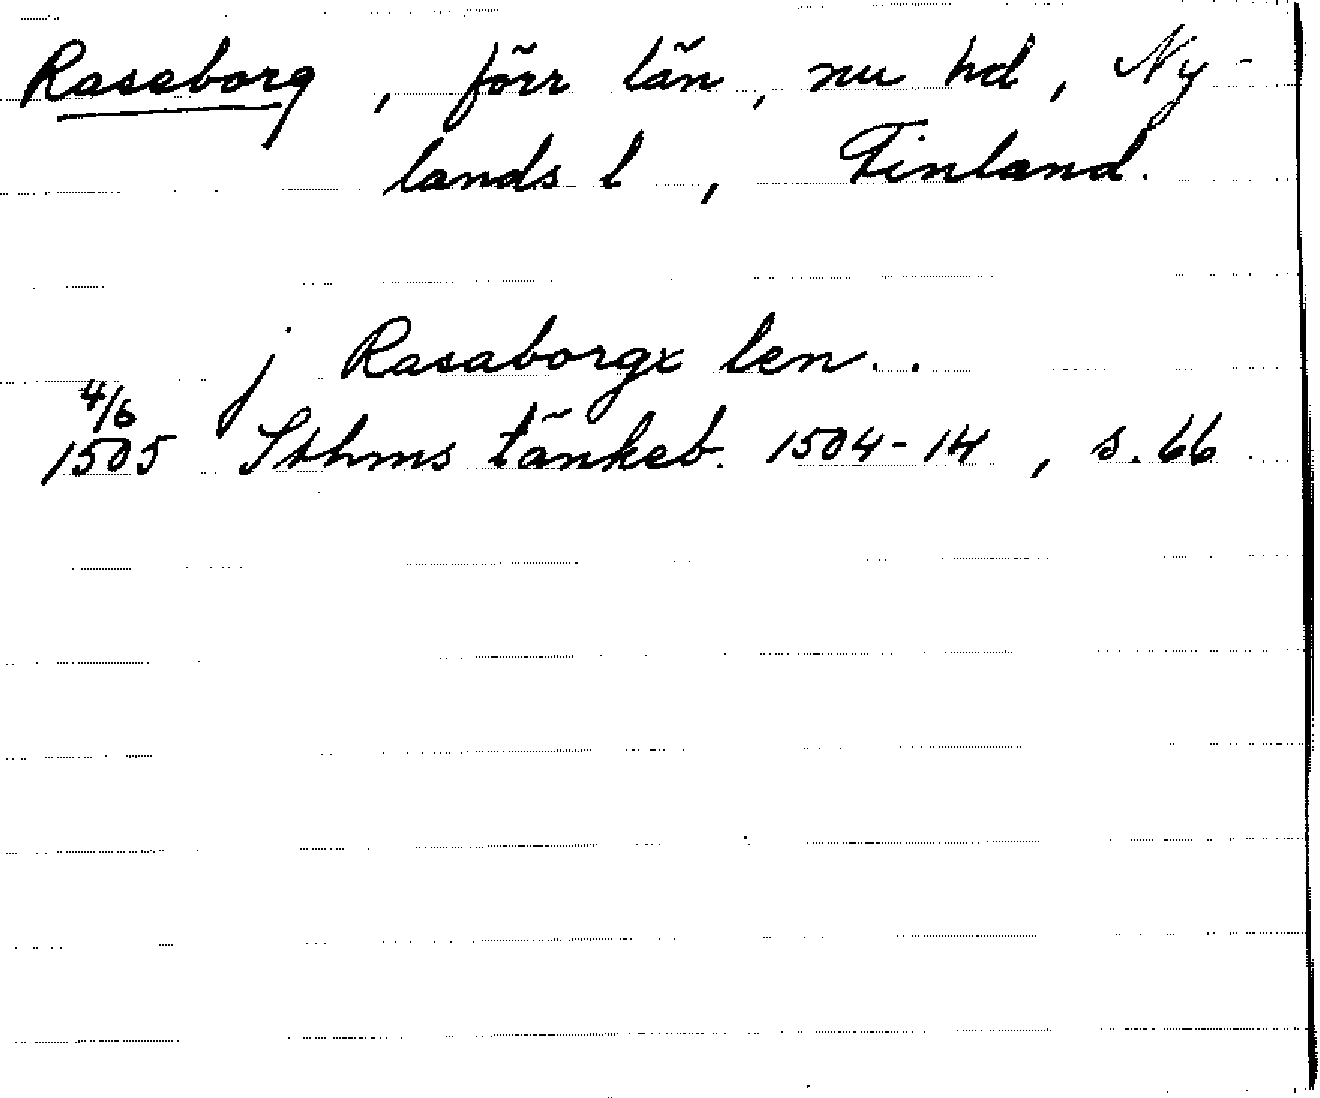 Raseborg, förr län, nu hd, Ny-
lands l, Finland.
j Rasaborgx len..
4/6
1505 Sthms tänkeb. 1504-14, s. 66